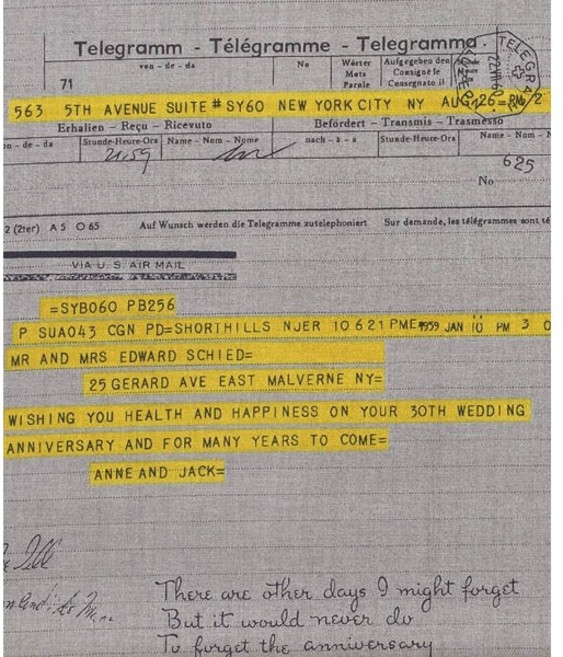 Telegramm - Télégramme - Telegramma
von - de - da No Wörter Mots Parole Aufgegeben den Consigné le Consegnato il
71
563 5TH AVENUE SUITE # SY60 NEW YORK CITY NY AUG 26 =
Erhalien - Reçu - Ricevuto Befördert - Transmis - Trasmesso
on - de - da Stunde-Heure-Ora Name - Nom - Nome nach - à - a Stunde-Heure-Ora Name - Nom - N
2159
625
No
2 (2ter) A 5 O 65 Auf Wunsch werden die Telegramme zutelephoniert Sur demande, les télégrammes sont té
VIA U. S. AIR MAIL
=SYB060 PB256
P SUA043 CGN PD=SHORTHILLS NJER 10 621 PME 1959 JAN 10 PM 3 0
MR AND MRS EDWARD SCHIED=
25 GERARD AVE EAST MALVERNE NY=
WISHING YOU HEALTH AND HAPPINESS ON YOUR 30TH WEDDING
ANNIVERSARY AND FOR MANY YEARS TO COME=
ANNE AND JACK=
There are other days I might forget
But it would never do
To forget the anniversary